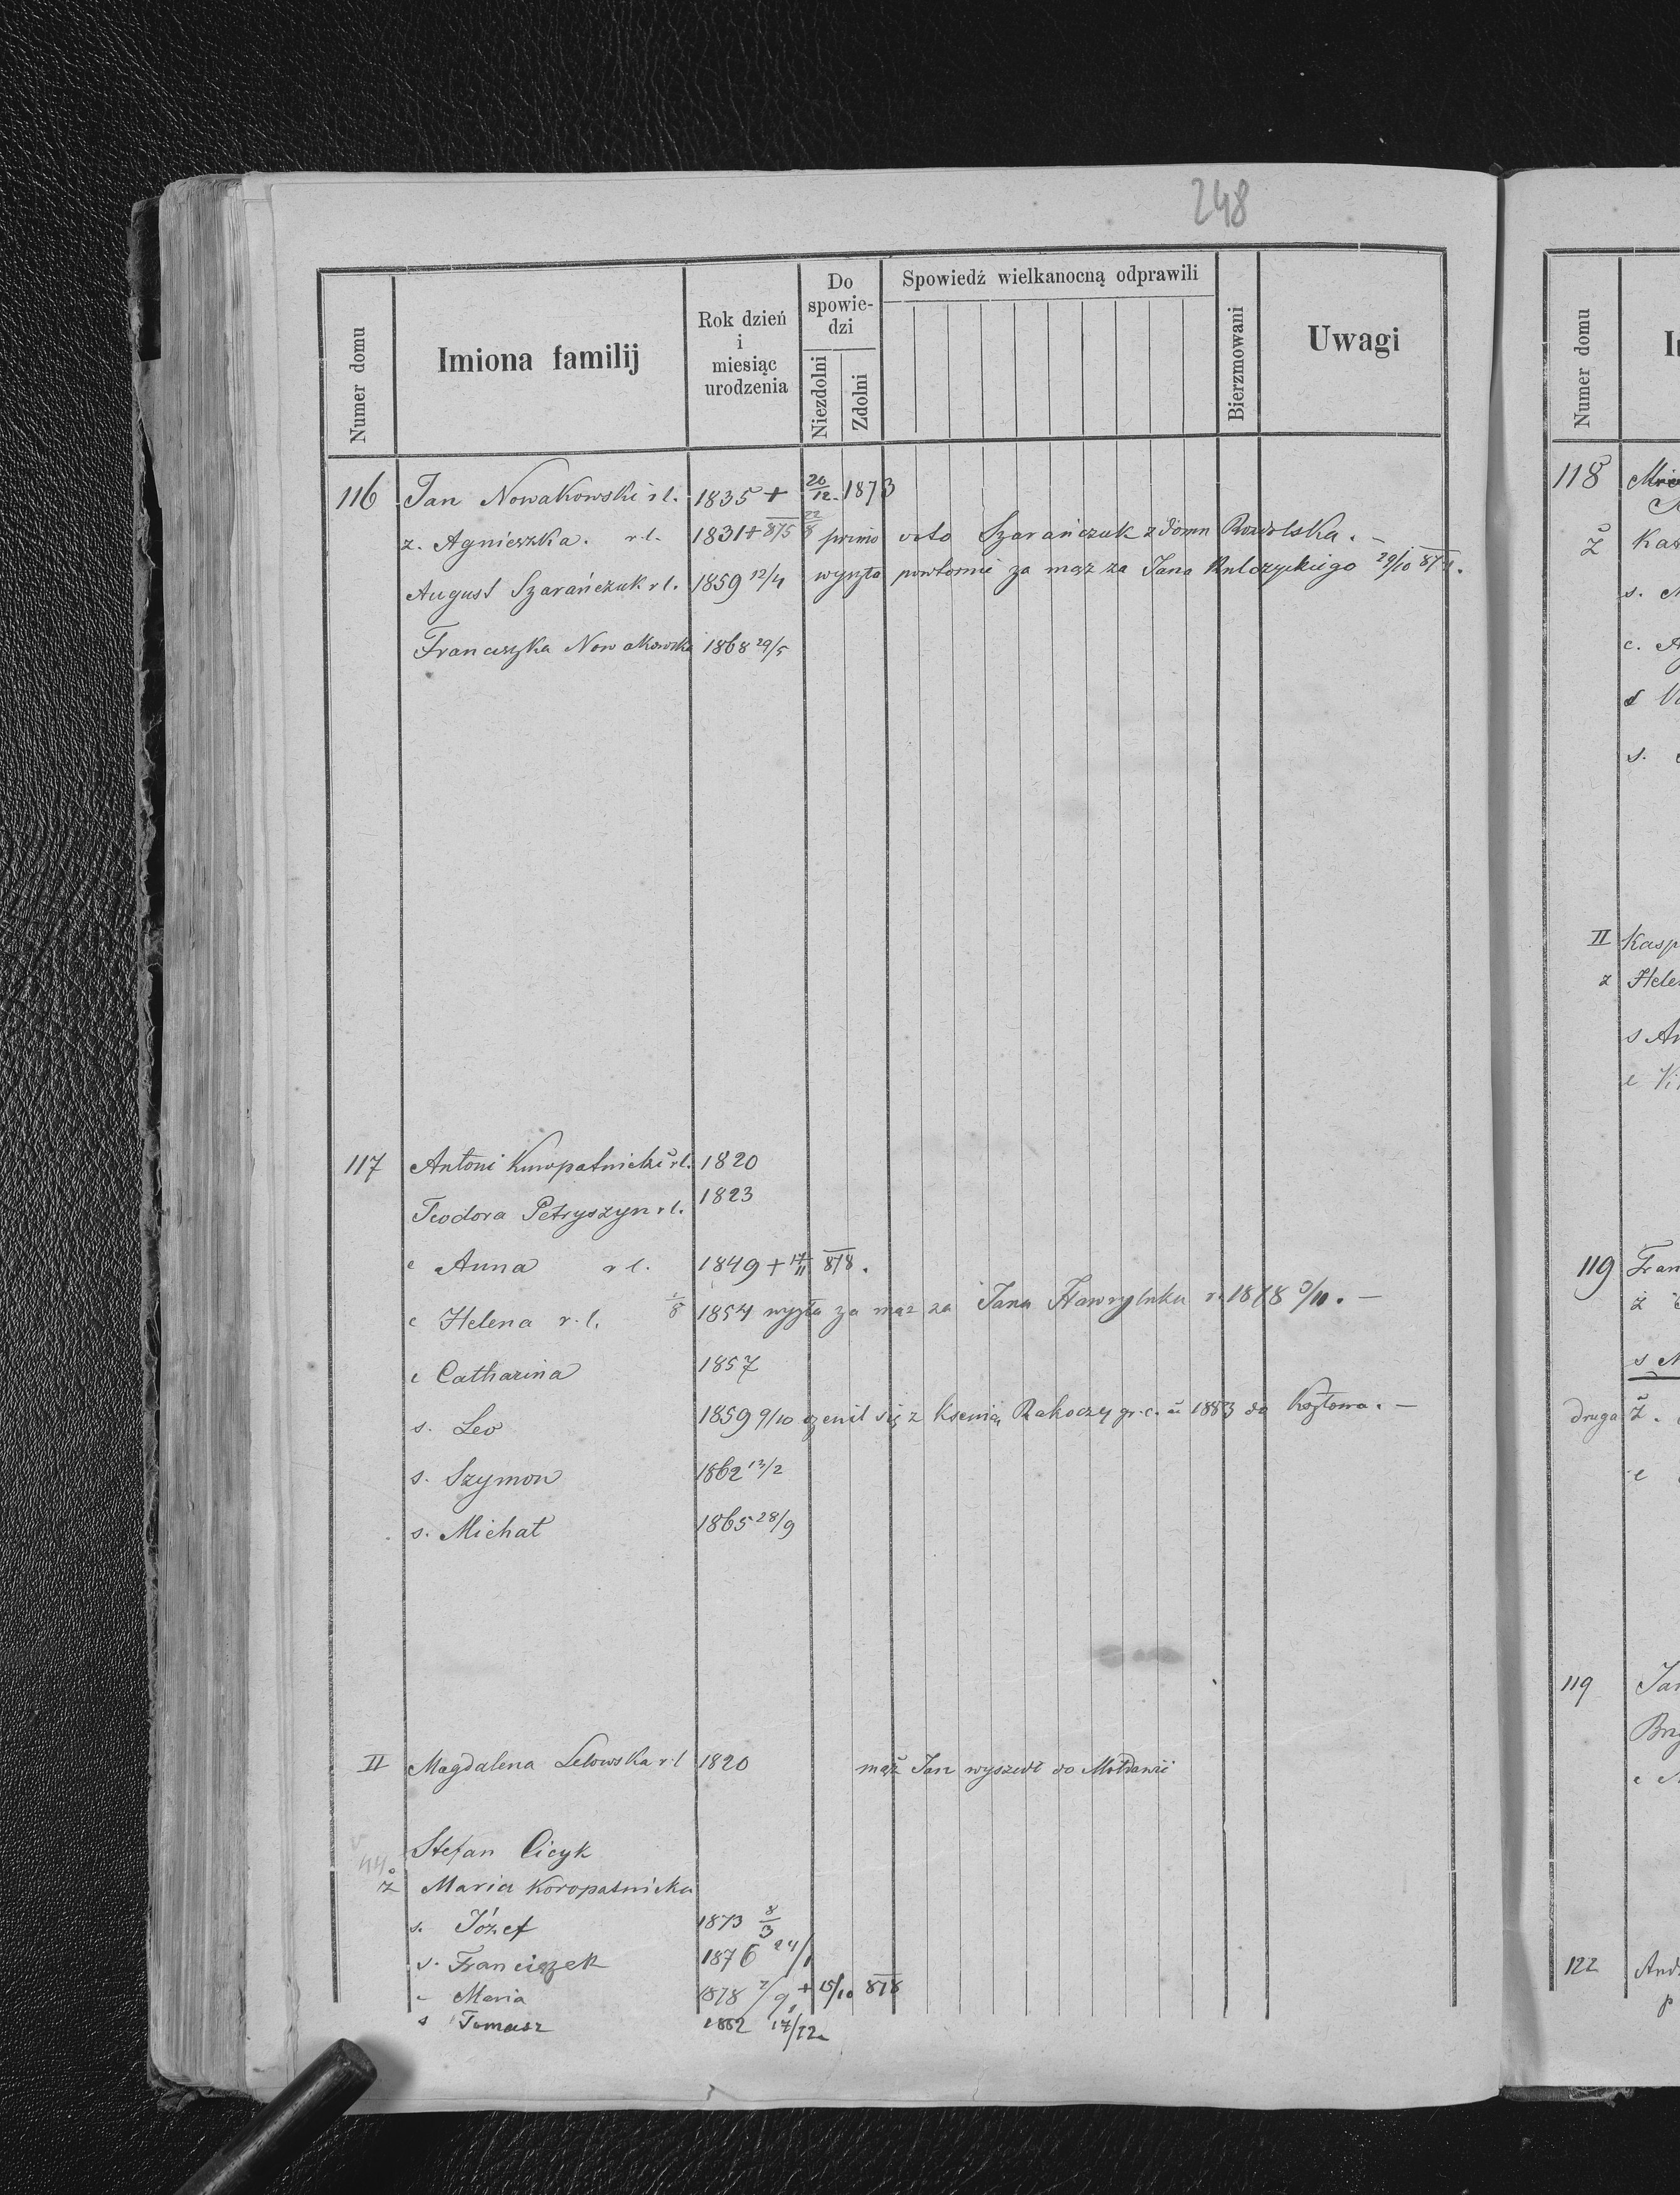 248
Numer domu
Imiona familij
Rok dzień i miesiąc urodzenia
Do spowiedzi
Niezdolni
Zdolni
Spowiedź wielkanocną odprawili
Bierzmowani
Uwagi
116 Jan Nowakowski r l. 1835 + 20/12. 1873
ż. Agnieszka. r. l. 1831 + 875 22/8 primo voto Szarańczuk z domu
August Szarańczuk r l. 1859 12/4 wyszła powtórnie za mąż za Jana 29/10 874.
Franciszka Nowakowska 1868 29/5
117 Antoni Kuropatnicki r l. 1820
Teodora Petryszyn r l. 1823
c Anna r l. 1849 + 17/11 878.
c Helena r. l. 1854 wyszła za mąż za Jana Hawryluka r. 1878
c Catharina 1857
s. Leo 1859 9/10 ożenił się z Ksenią Rakoczy gr. c. 1883 do Kozłowa. —
s. Szymon 1862 13/2
s. Michał 1865 28/9
II Magdalena Lelowska r l 1820 mąż Jan wyszedł do Mołdawii
Stefan Cicyk
44
ż Maria Koropatnicka
s. Józef 1873 8/3
s. Franciszek 1876 24/1
c Maria 1878 7/9 + 15/10 878
s Tomasz 1882 17/12
Numer domu
118
ż Kas
s.
c.
s.
II Kasp
ż Hele
s An
c
119 Fran
ż
s
druga ż.
c
119 Jan
c
122 And
p